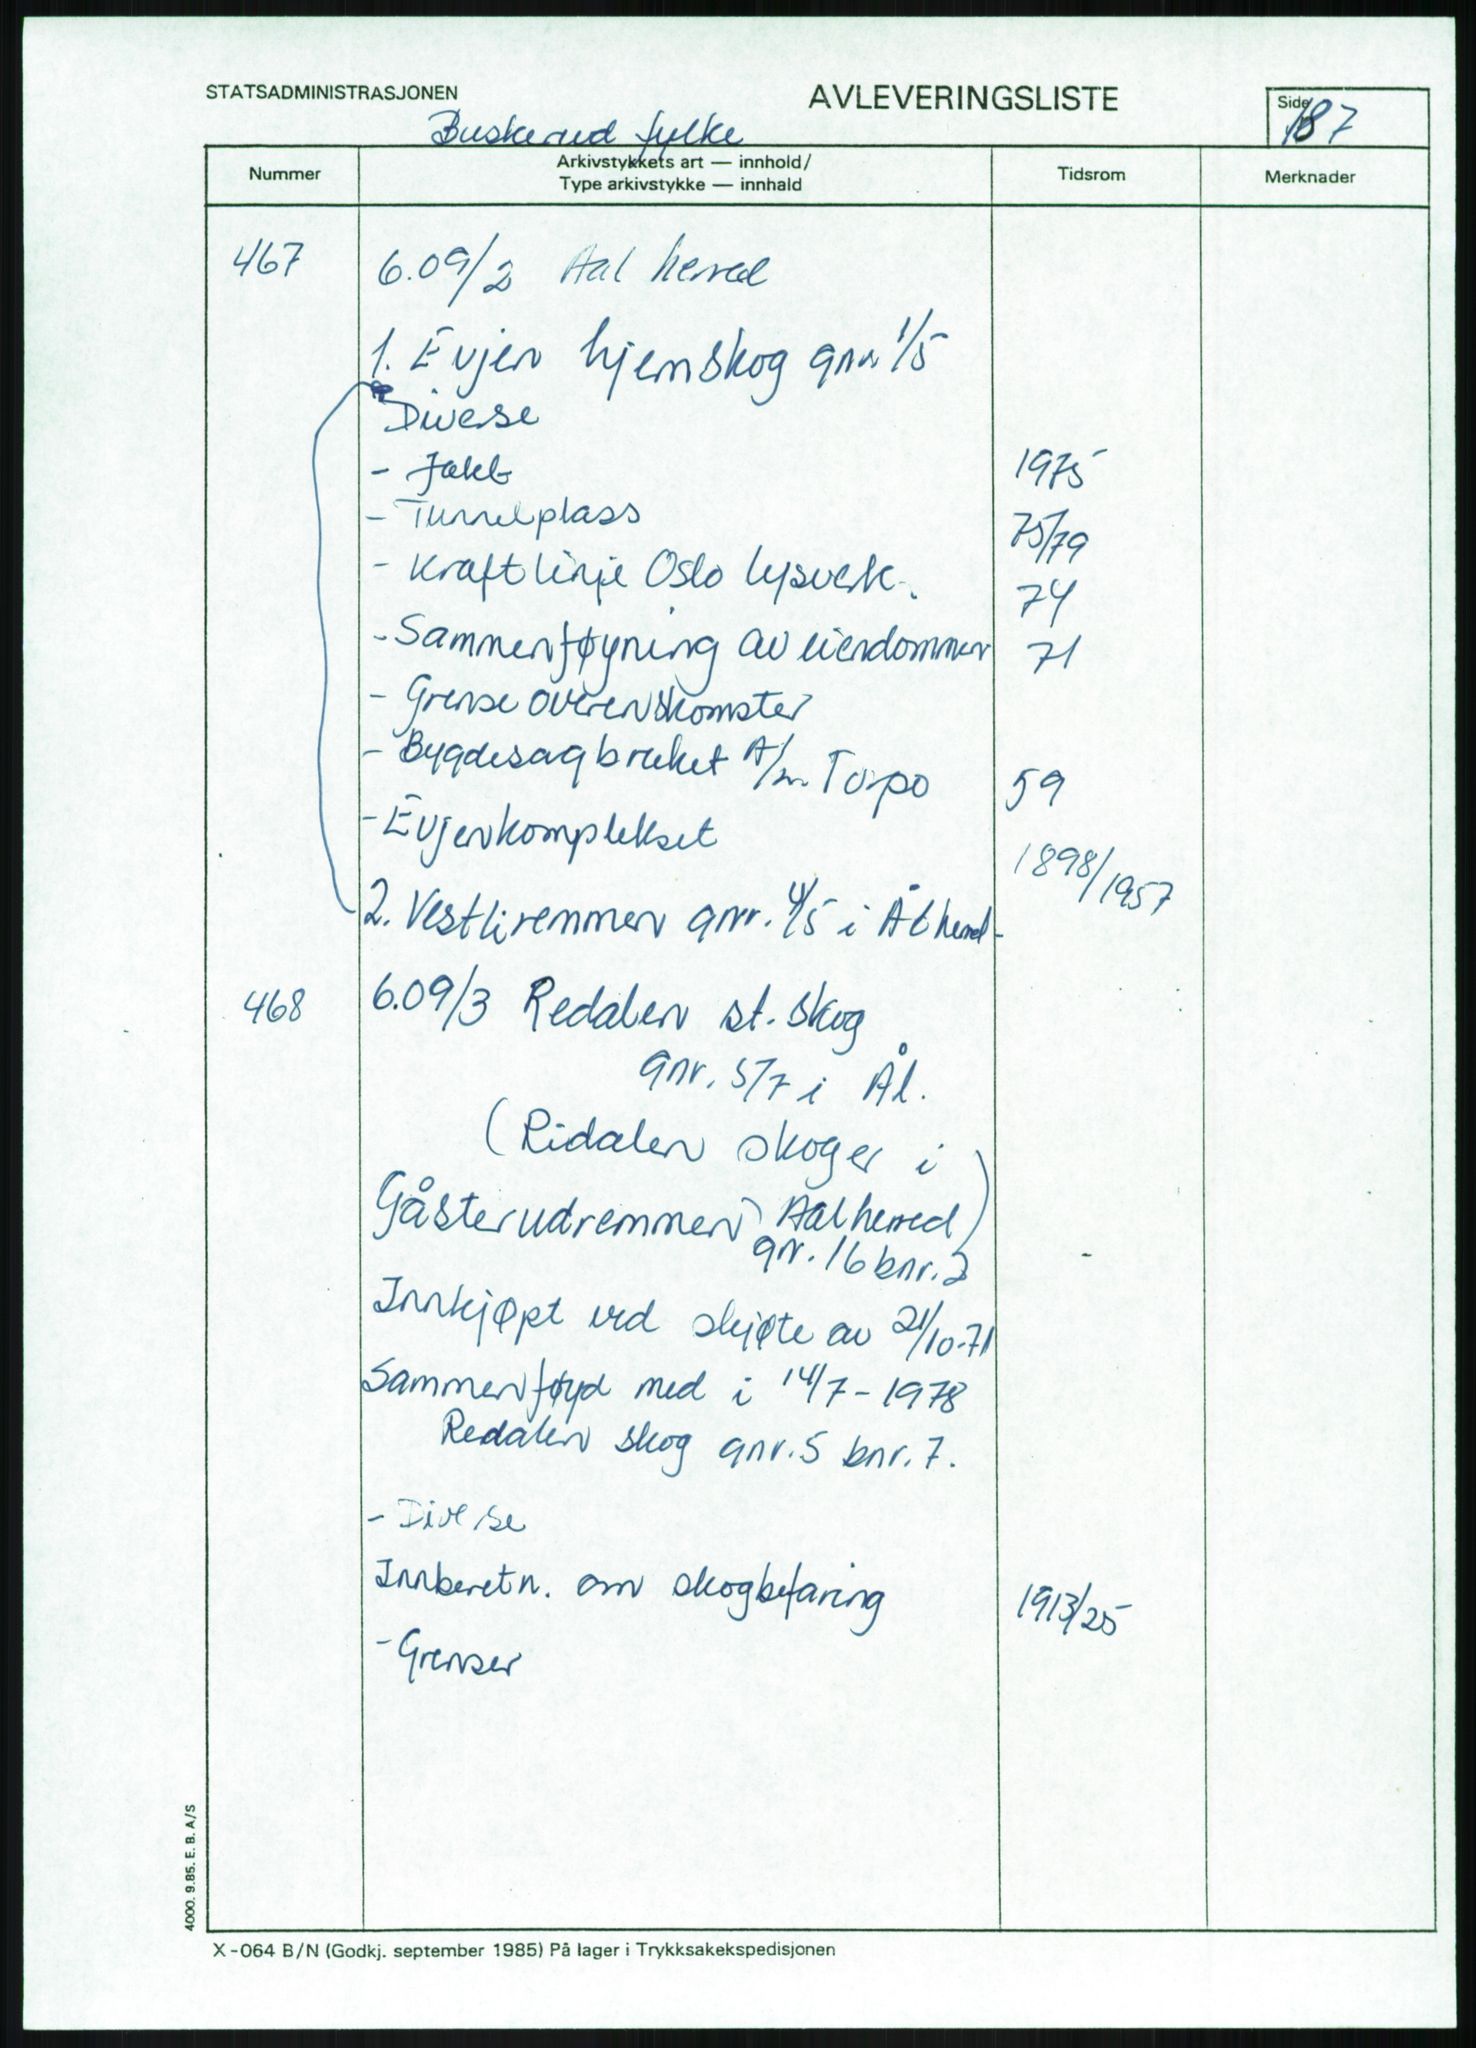 STATSADMINISTRASJONEN
AVLEVERINGSLISTE
Side 187
Buskerud fylke
Nummer
Arkivstykkets art — innhold/
Type arkivstykke — innhald
Tidsrom
Merknader
467 6.09/2 Aal herred
1. Evjen hjemskog gnr. 1/5
Diverse
- Jakt 1975
- Tunnelplass 75/79
- Kraftlinje Oslo lysverk. 74
- Sammenføyning av eiendommer 71
- Grenseoverenskomster
- Bygdesagbruket A/ Torpo 59
- Evjenkomplekset 1898/1957
2. Vestliremmen gnr. 4/5 i Ål herred
468 6.09/3 Redalen st. skog
gnr. 5/7 i Ål.
(Ridalen skoger i
Gåsterudremmen Aal herred)
gnr. 16 bnr. 2
Innkjøpt ved skjøte av 21/10-71
Sammenføyd med i 14/7-1978
Redalen skog gnr. 5 bnr. 7.
- Diverse
Innberetn. om skogbefaring 1913/25
- Grenser
4000. 9.85. E. B. A/S
X-064 B/N (Godkj. september 1985) På lager i Trykksakekspedisjonen